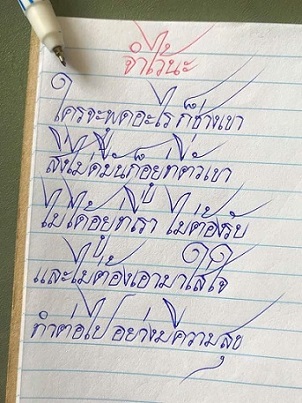 จำไว้นะ
ใครจะพูดอะไรก็ช่างเขา
สิ่งไม่ดีมันก็อยู่ที่ตัวเขา
ไม่ได้อยู่ที่เรา ไม่ต้องรับ
และไม่ต้องเอามาใส่ใจ
ทำต่อไปอย่างมีความสุข